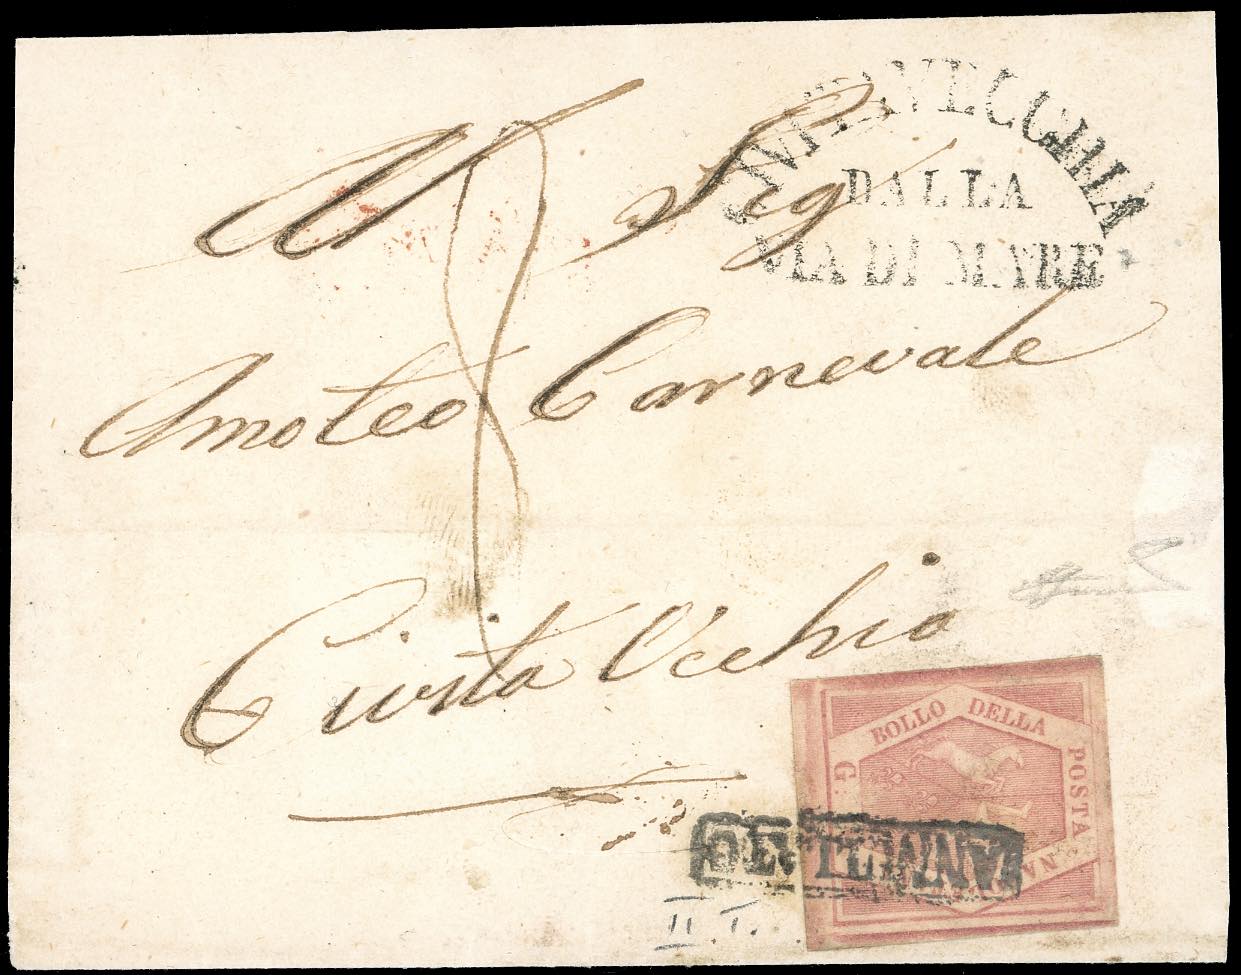 CIVITAVECCHIA
DALLA
VIA DI MARE
Al Sig
8
Amoteo Carnevale
Civita Vechia
BOLLO DELLA POSTA NA
G.
ANNULLATO
II T.